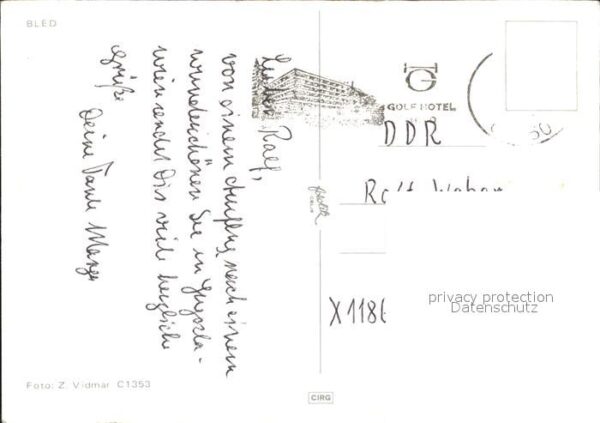 BLED
Lieber Ralf,
von einem Ausflug nach einem
wunderschönen See in Jugosla-
wien sendet Dir viele herzliche
Grüße
Deine Tante
GOLF HOTEL
DDR
Ralf
X1186
privacy protection
Datenschutz
Foto: Z. Vidmar C1353
CIRG